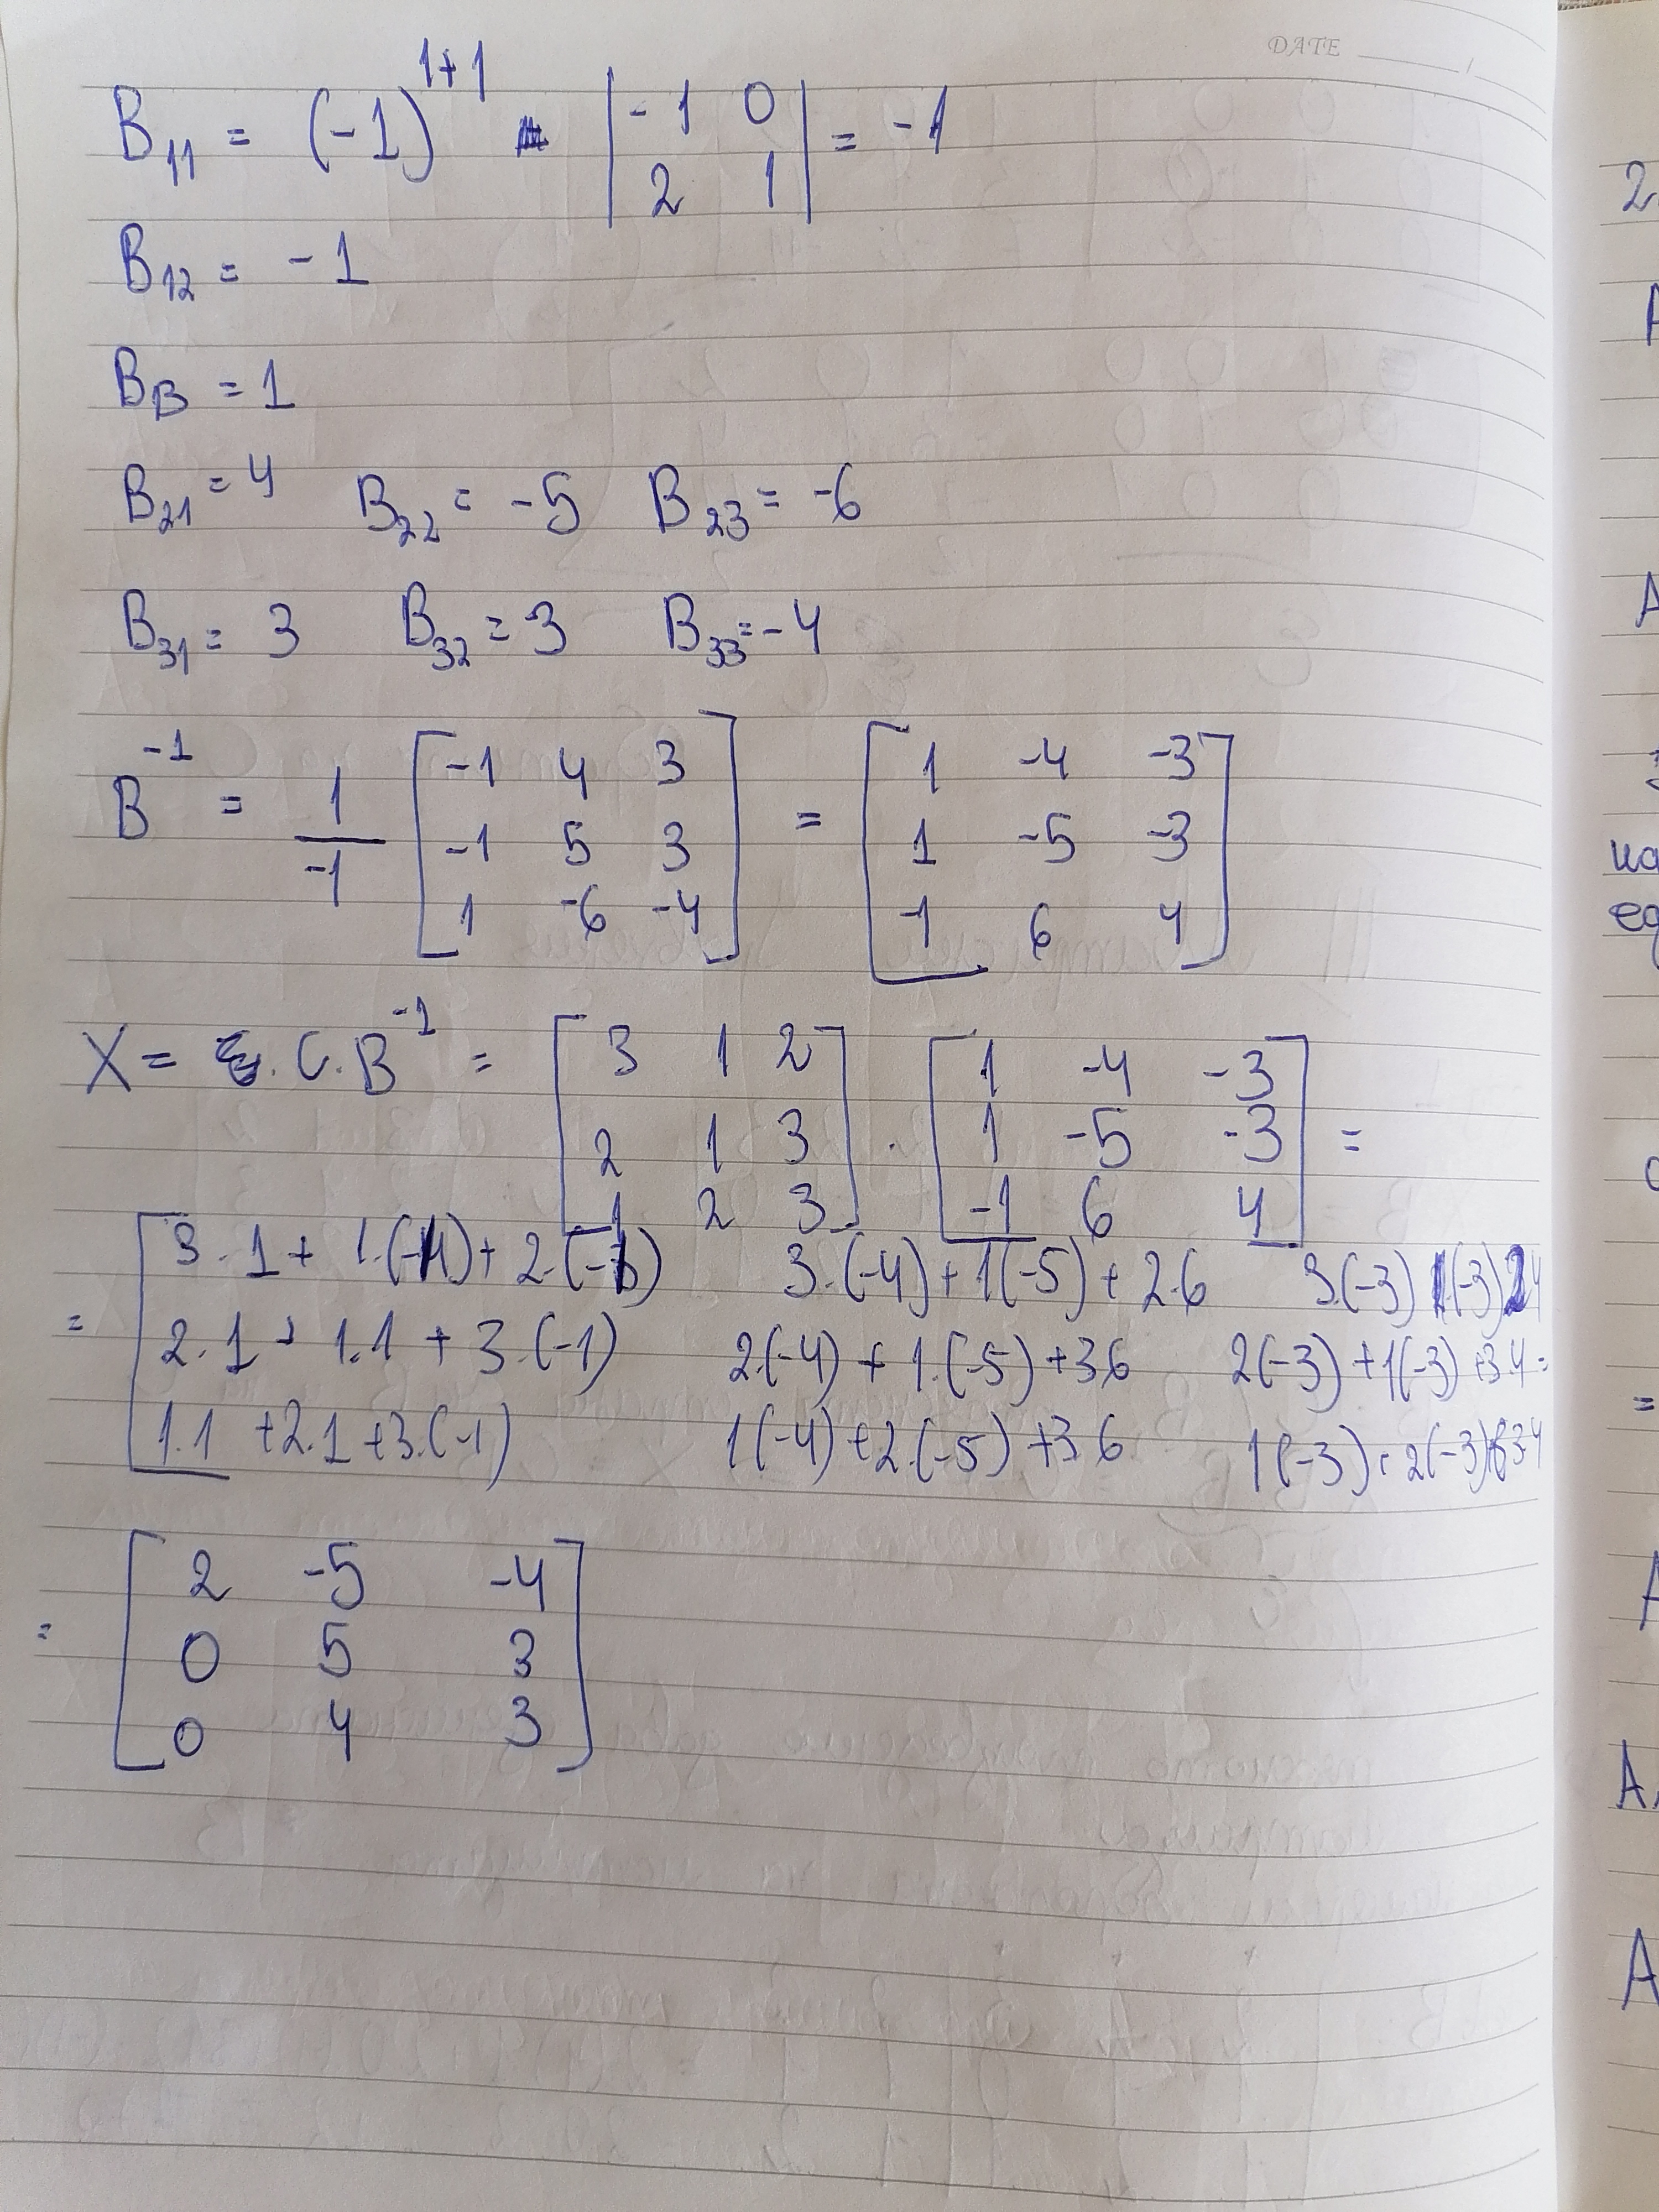 DATE
B₁₁ = (-1)¹⁺¹ | -1 0 | = -1
| 2 1 |
B₁₂ = -1
B₁₃ = 1
B₂₁ = 4 B₂₂ = -5 B₂₃ = -6
B₃₁ = 3 B₃₂ = 3 B₃₃ = -4
B⁻¹ = 1/-1 [ -1 4 3 ] = [ 1 -4 -3 ]
[ -1 5 3 ] [ 1 -5 -3 ]
[ 1 -6 -4 ] [ -1 6 4 ]
X = . C . B⁻¹ = [ 3 1 2 ] . [ 1 -4 -3 ] =
[ 2 1 3 ] [ 1 -5 -3 ]
[ 1 2 3 ] [ -1 6 4 ]
[ 3.1 + 1.( ) + 2.(-1) 3.(-4) + 1(-5) + 2.6 3.(-3) 1(-3) 2.4
= 2.1 + 1.1 + 3.(-1) 2.(-4) + 1.(-5) + 3.6 2(-3) + 1(-3) + 3.4 =
1.1 + 2.1 + 3.(-1) 1(-4) + 2.(-5) + 3.6 1(-3) + 2(-3) + 3.4
= [ 2 -5 -4 ]
[ 0 5 3 ]
[ 0 4 3 ]